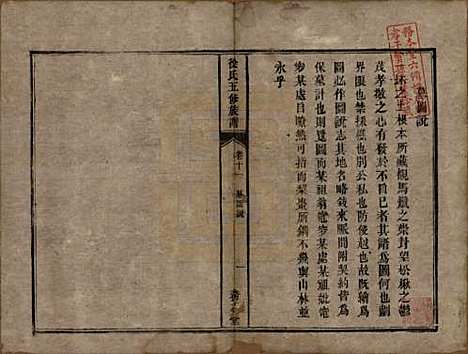 墓圖說
抔之土根本所藏覩馬鬣之崇封望松楸之鬱
茂孝敬之心有發於不自已者其諸爲圖何也劃
界限也禁採樵也別公私也防侵越也故既繪爲
圖必作圖說志其地名略錢來脈開附契約皆爲
保墓計也則覽圖而某祖窀穸某處某祖窀
穸某處目瞭然可指而梨棗所鐫不幾與山林並
永乎
徐氏五修族譜
卷十一
墓圖說
一